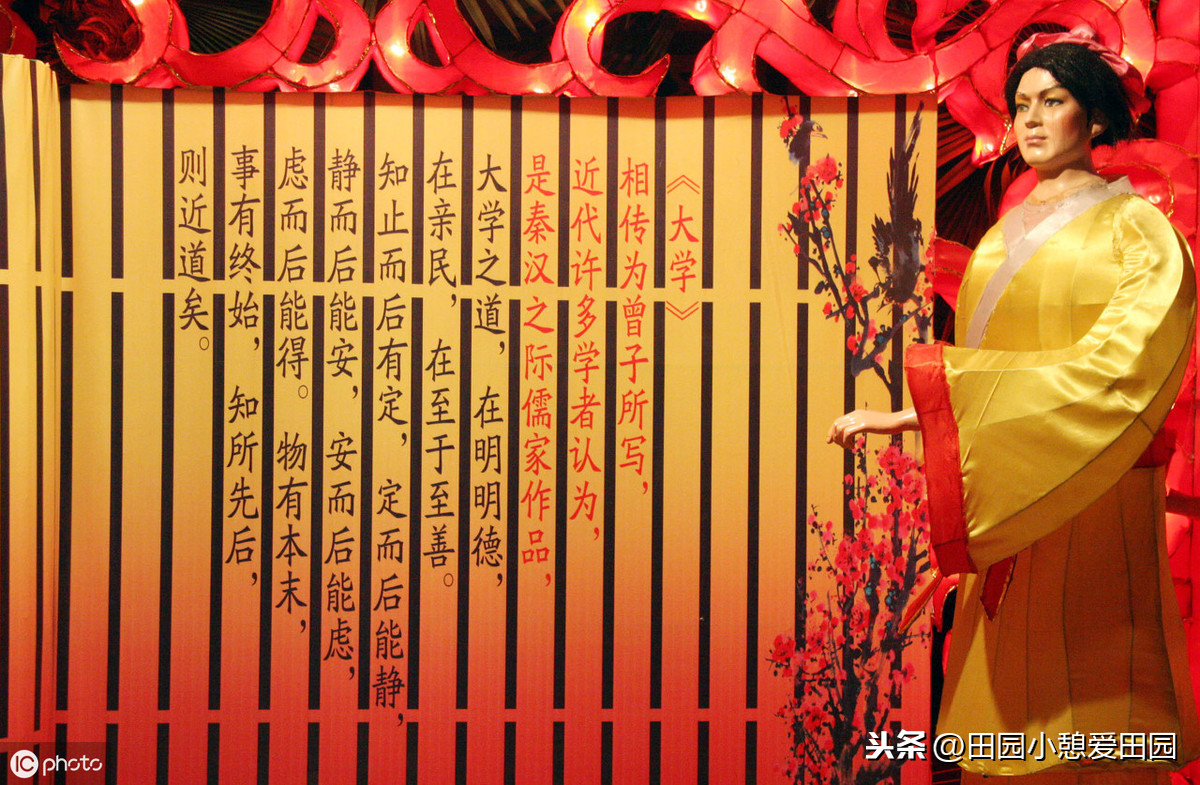 《大学》
相传为曾子所写，
近代许多学者认为，
是秦汉之际儒家作品，
大学之道，在明明德，
在亲民，在至于至善。
知止而后有定，定而后能静，
静而后能安，安而后能虑，
虑而后能得。物有本末，
事有终始，知所先后，
则近道矣。
IC photo
头条 @田园小憩爱田园